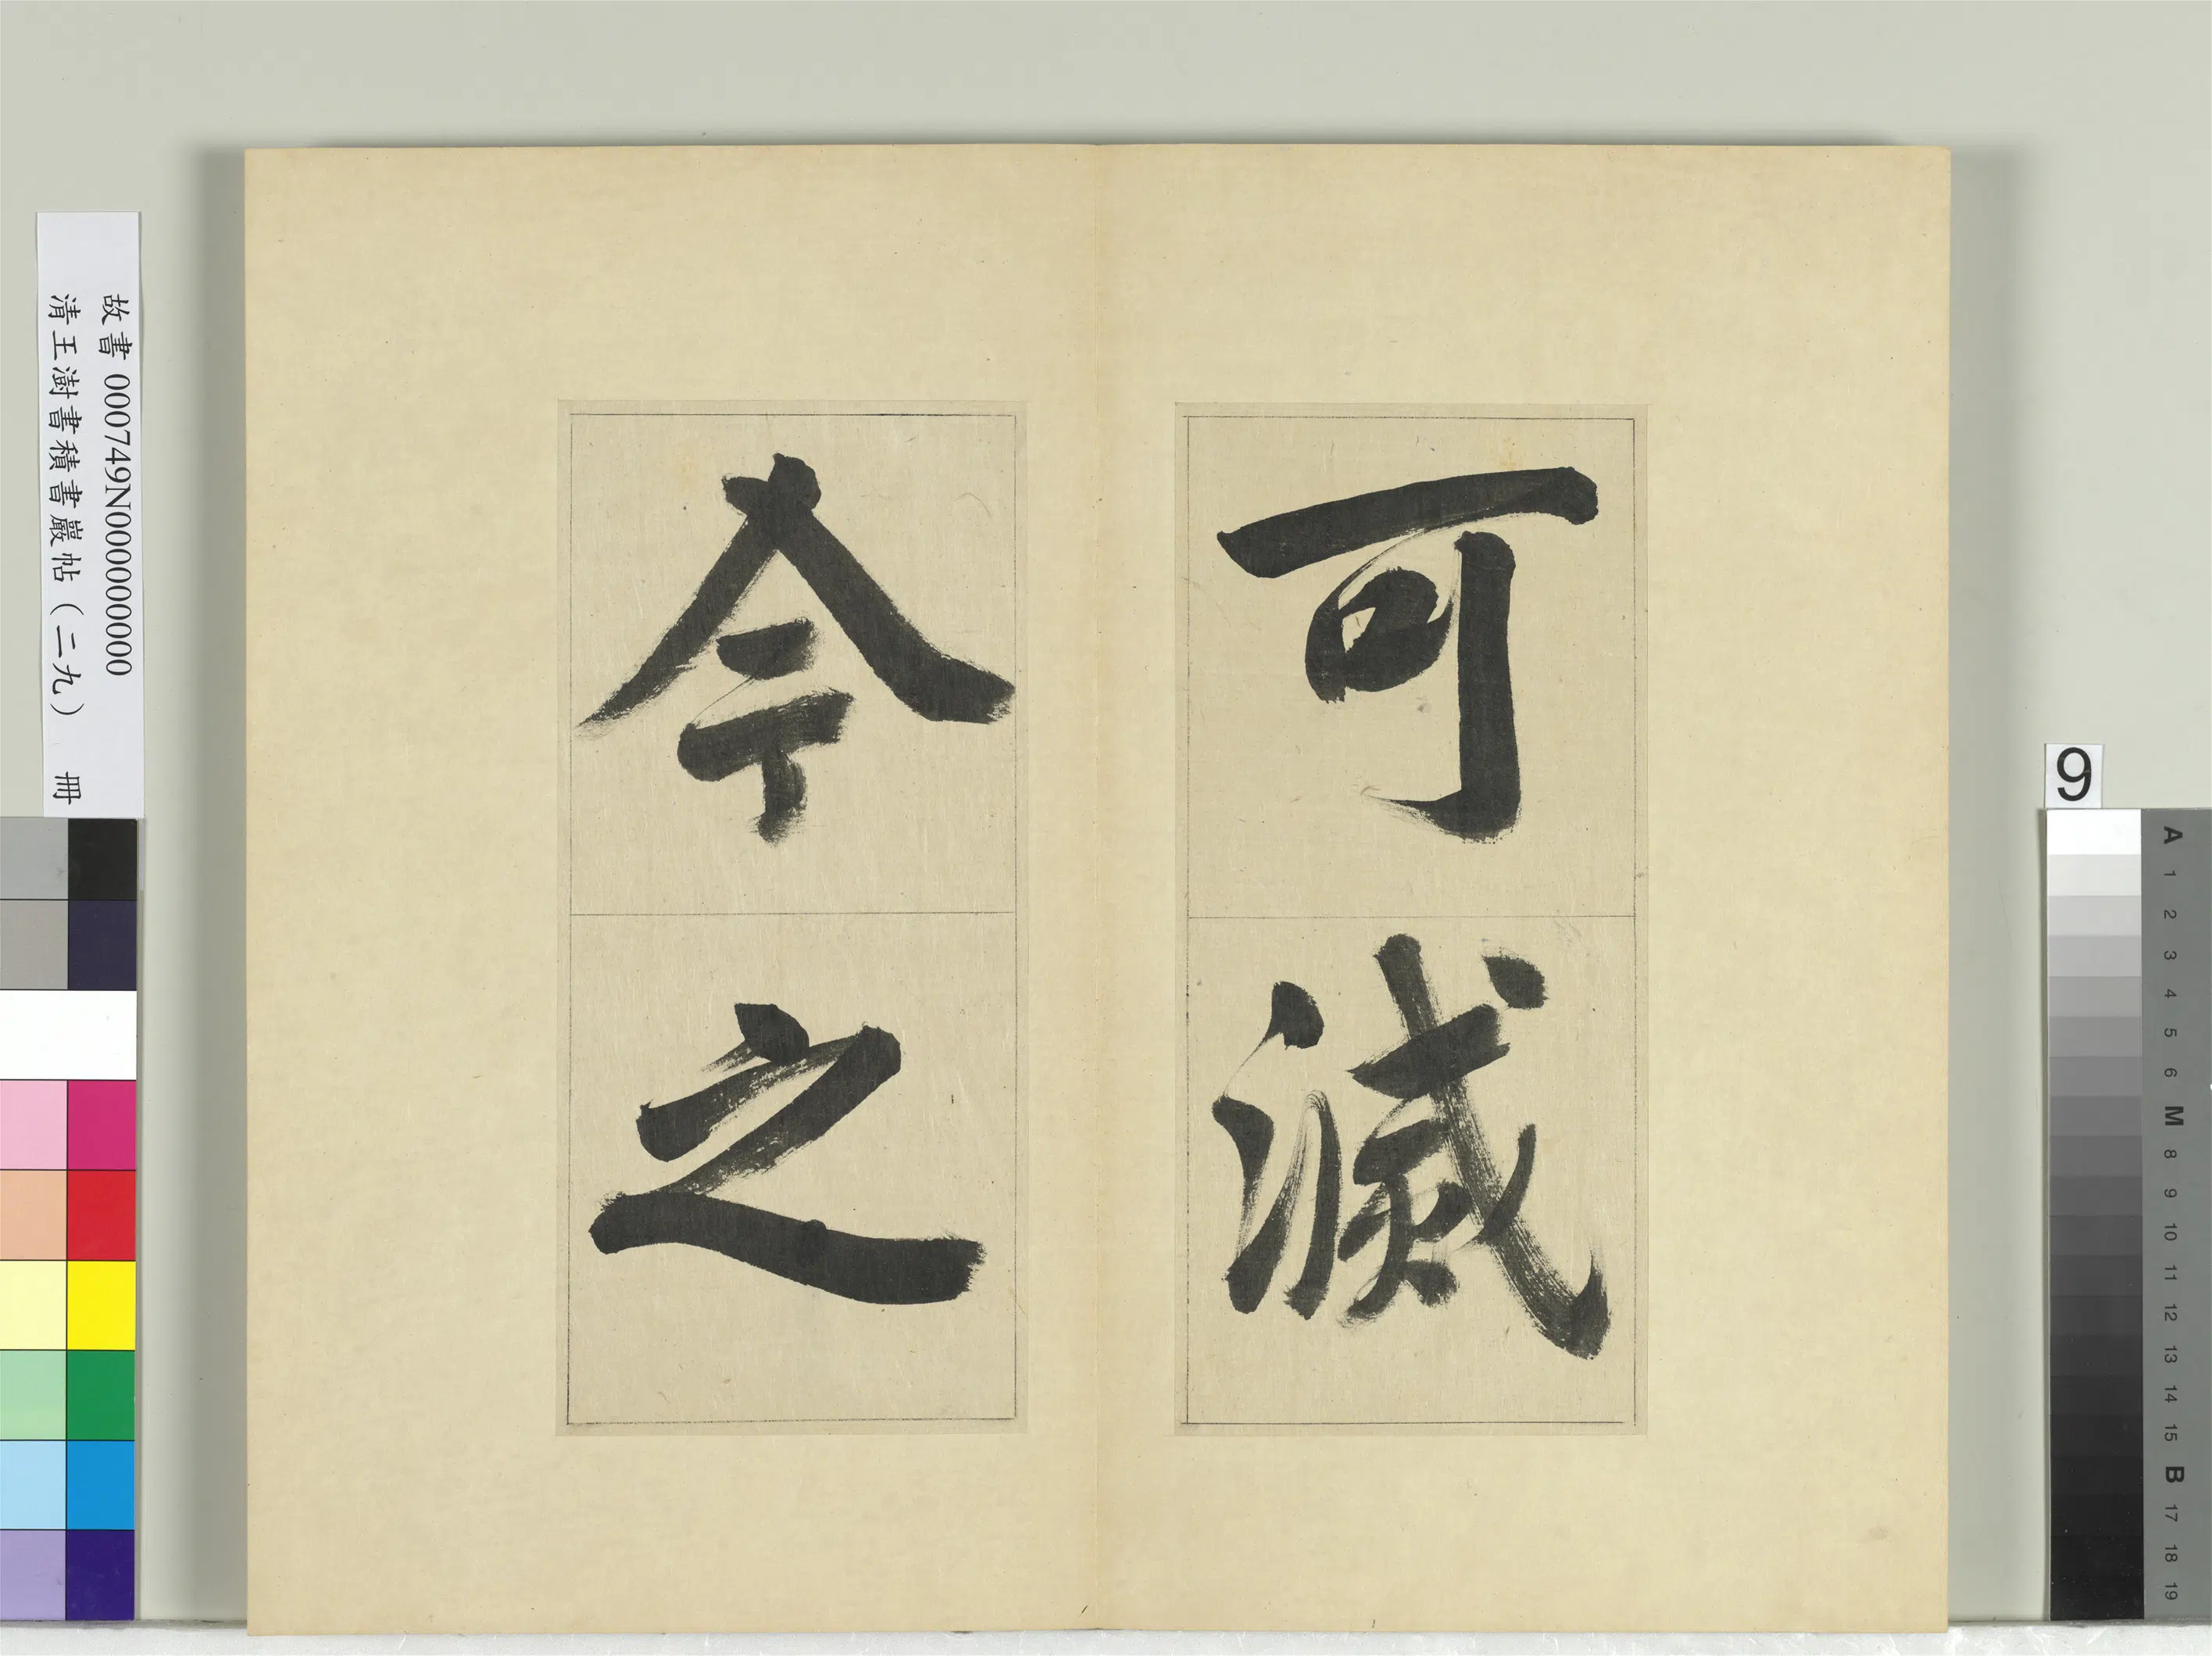 可滅
今之
故書 000749N000000000
清王澍書積書巖帖（二九） 冊
9
A
1
2
3
4
5
6
M
8
9
10
11
12
13
14
15
B
17
18
19